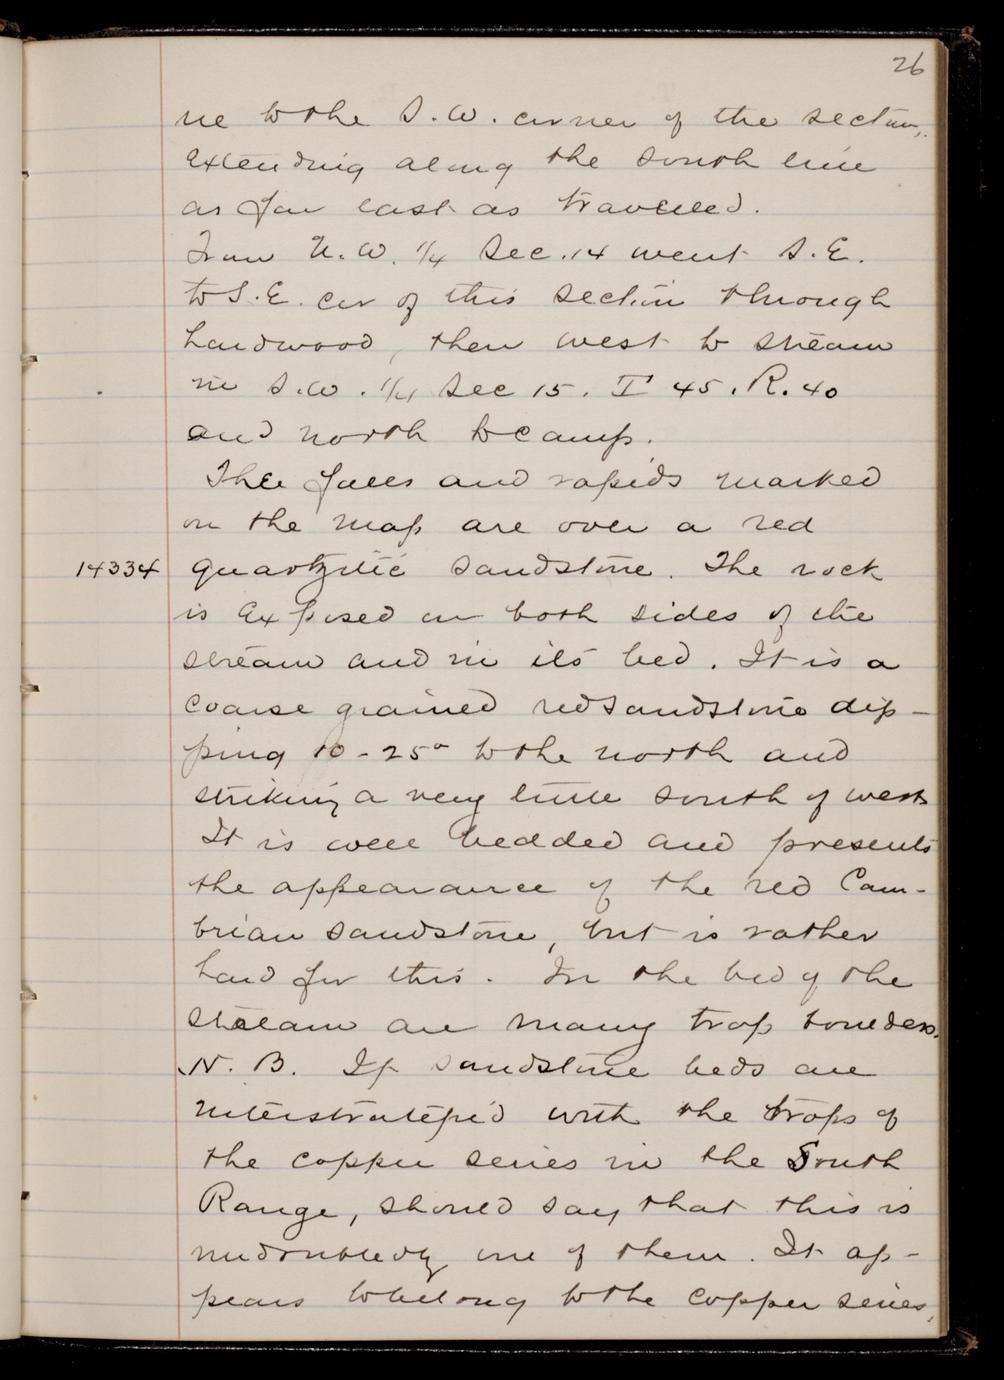 26
ne to the S.W. corner of the section,
extending along the south line
as far east as traveled.
From N.W. 1/4 Sec. 14 went S.E.
to S.E. cor of this section through
hardwood, then west to stream
in S.W. 1/4 Sec 15. T 45. R. 40
and north to camp.
The falls and rapids marked
on the map are over a red
14334 quartzitic sandstone. The rock
is exposed on both sides of the
stream and in its bed. It is a
coarse grained red sandstone dip-
ping 10-25° to the north and
striking a very little south of west
It is well bedded and presents
the appearance of the red Cam-
brian sandstone, but is rather
hard for this. In the bed of the
stream are many trap boulders.
N.B. If sandstone beds are
interstratified with the traps of
the copper series in the South
Range, should say that this is
undoubtedly one of them. It ap-
pears to belong to the copper series,